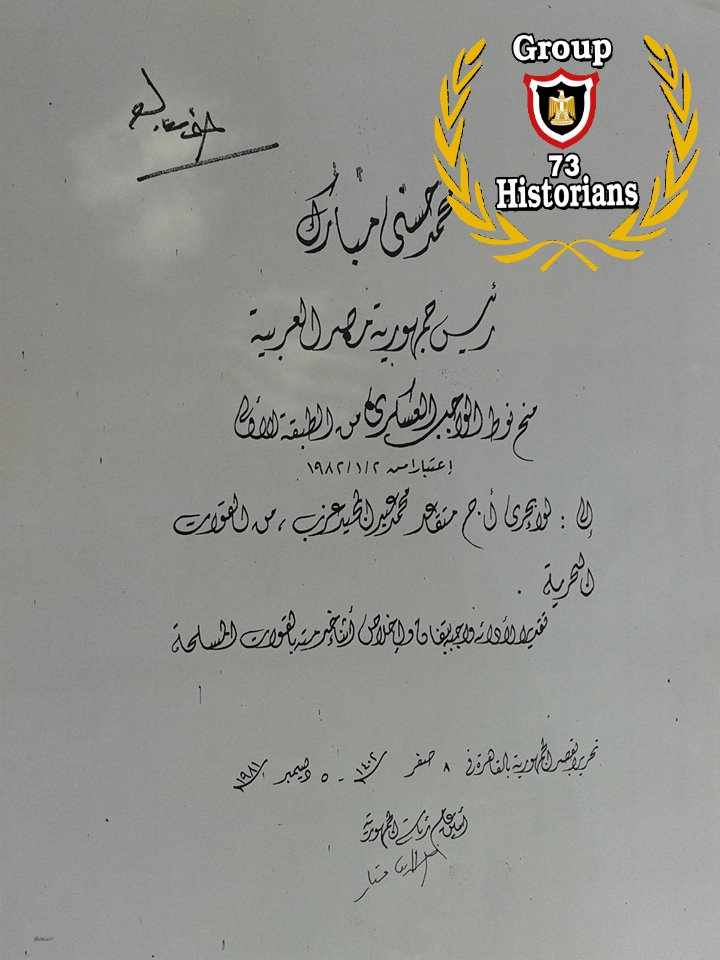 Group
73
Historians
محمد حسنى مبارك
رئيس جمهورية مصر العربية
منح نوط الواجب العسكرى من الطبقة الأولى
إعتبارا من ١٩٨٢/١/٢
إلى : لواء بحرى أ.ح متقاعد محمد عبد الحميد عزب ، من القوات
البحرية .
تقديرا لأدائه واجبه بتفان وإخلاص أثناء خدمته بالقوات المسلحة
تحريرا بقصر الجمهورية بالقاهرة فى ٨ صفر ١٤٠٢ - ٥ ديسمبر ١٩٨١
أمين عام رئاسة الجمهورية